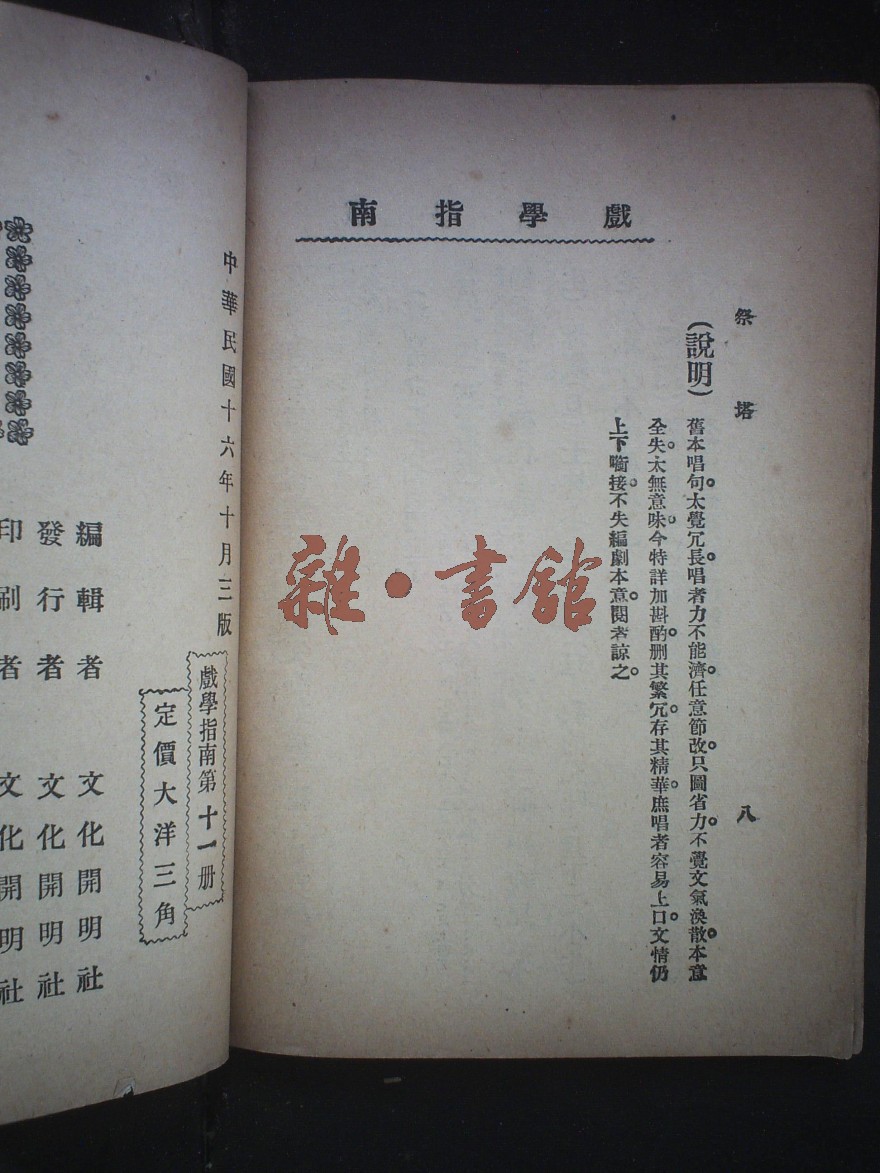 戲學指南
祭塔
八
(說明)
舊本唱句。太覺冗長。唱者力不能濟。任意節改。只圖省力。不覺文氣渙散。本意
全失。太無意味。今特詳加斟酌。刪其繁冗。存其精華。庶唱者容易上口。文情仍
上下啣接。不失編劇本意。閱者諒之。
雜·書館
中華民國十六年十月三版
戲學指南第十一册
定價大洋三角
編輯者 文化開明社
發行者 文化開明社
印刷者 文化開明社